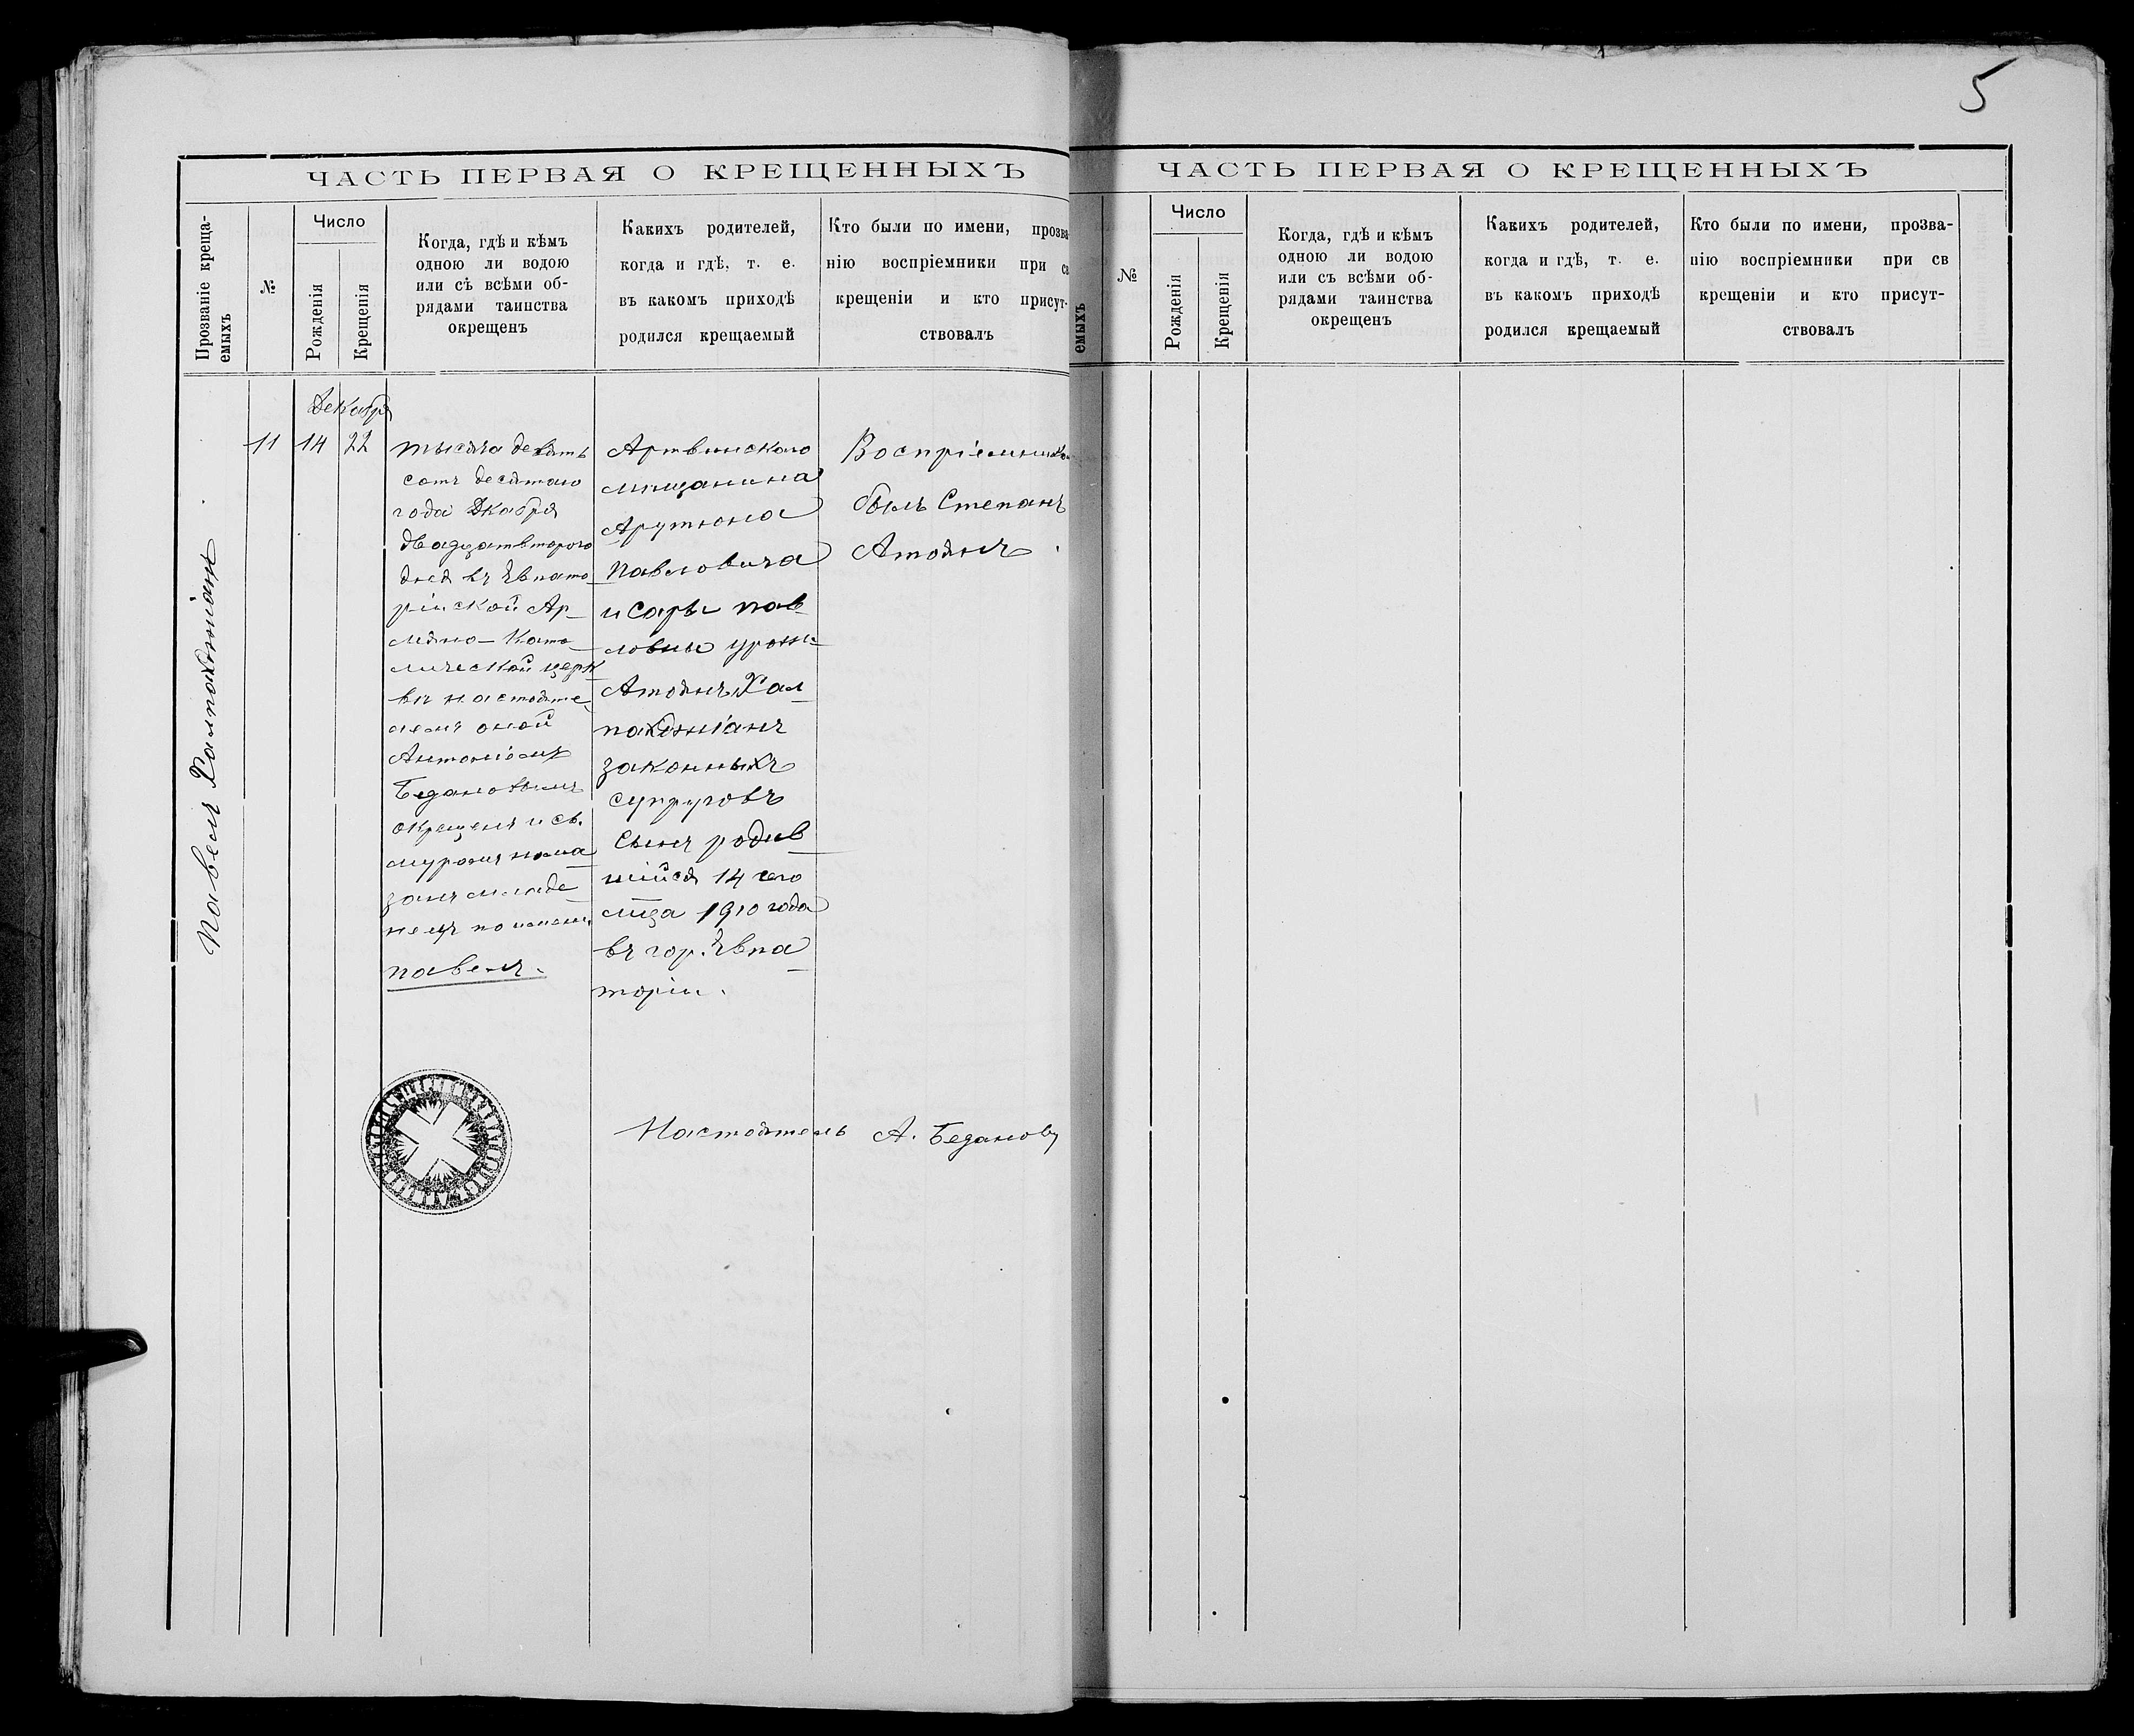 5
ЧАСТЬ ПЕРВАЯ О КРЕЩЕННЫХЪ
Прозваніе креща-
емыхъ
№
Число
Рожденія
Крещенія
Когда, гдѣ и кѣмъ
одною ли водою
или съ всѣми об-
рядами таинства
окрещенъ
Какихъ родителей,
когда и гдѣ, т. е.
въ какомъ приходѣ
родился крещаемый
Кто были по имени, прозва
нію воспріемники при св
крещеніи и кто присут-
ствовалъ
Павелъ
Декабря
11
14
22
тысяча девять
сотъ десятаго
года Декабря
двадцатвторого
дня въ Евпато
рійской Ар-
мяно-Като-
лической церк
вѣ настояте
лемъ оной
Антоніомъ
Бедановымъ
окрещенъ и св.
муромъ пома
занъ младе
нецъ по имени
Павелъ.
Артвинского
мѣщанина
Арутюна
Павловича
и Сары Пав
ловны урожд.
Атоянъ Хал
законныхъ
супруговъ
сынъ родив
шійся 14 сего
мца 1910 года
въ гор. Евпа
торіи.
Воспріемником
былъ Степанъ
Атоянъ.
Настоятель А. Бедановъ
ЧАСТЬ ПЕРВАЯ О КРЕЩЕННЫХЪ
емыхъ
№
Число
Рожденія
Крещенія
Когда, гдѣ и кѣмъ
одною ли водою
или съ всѣми об-
рядами таинства
окрещенъ
Какихъ родителей,
когда и гдѣ, т. е.
въ какомъ приходѣ
родился крещаемый
Кто были по имени, прозва-
нію воспріемники при св
крещеніи и кто присут-
ствовалъ